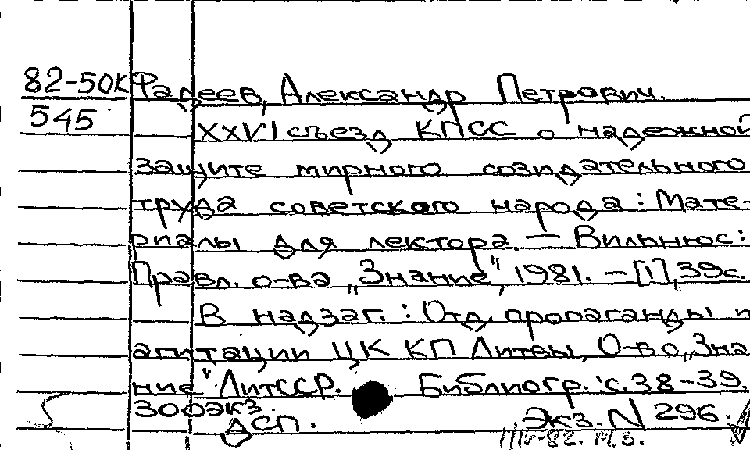 82-50К Фадеев, Александр Петрович.
545 XXVI съезд КПСС о надежной
защите мирного созидательного
труда советского народа : Мате-
риалы для лектора. — Вильнюс :
Правл. о-ва „Знание", 1981. — [1], 39 с.
В надзаг. : Отд. пропаганды и
агитации ЦК КП Литвы, О-во „Зна-
ние" ЛитССР. Библиогр.: с. 38-39.
300 экз.
ДСП. Экз. N 296.